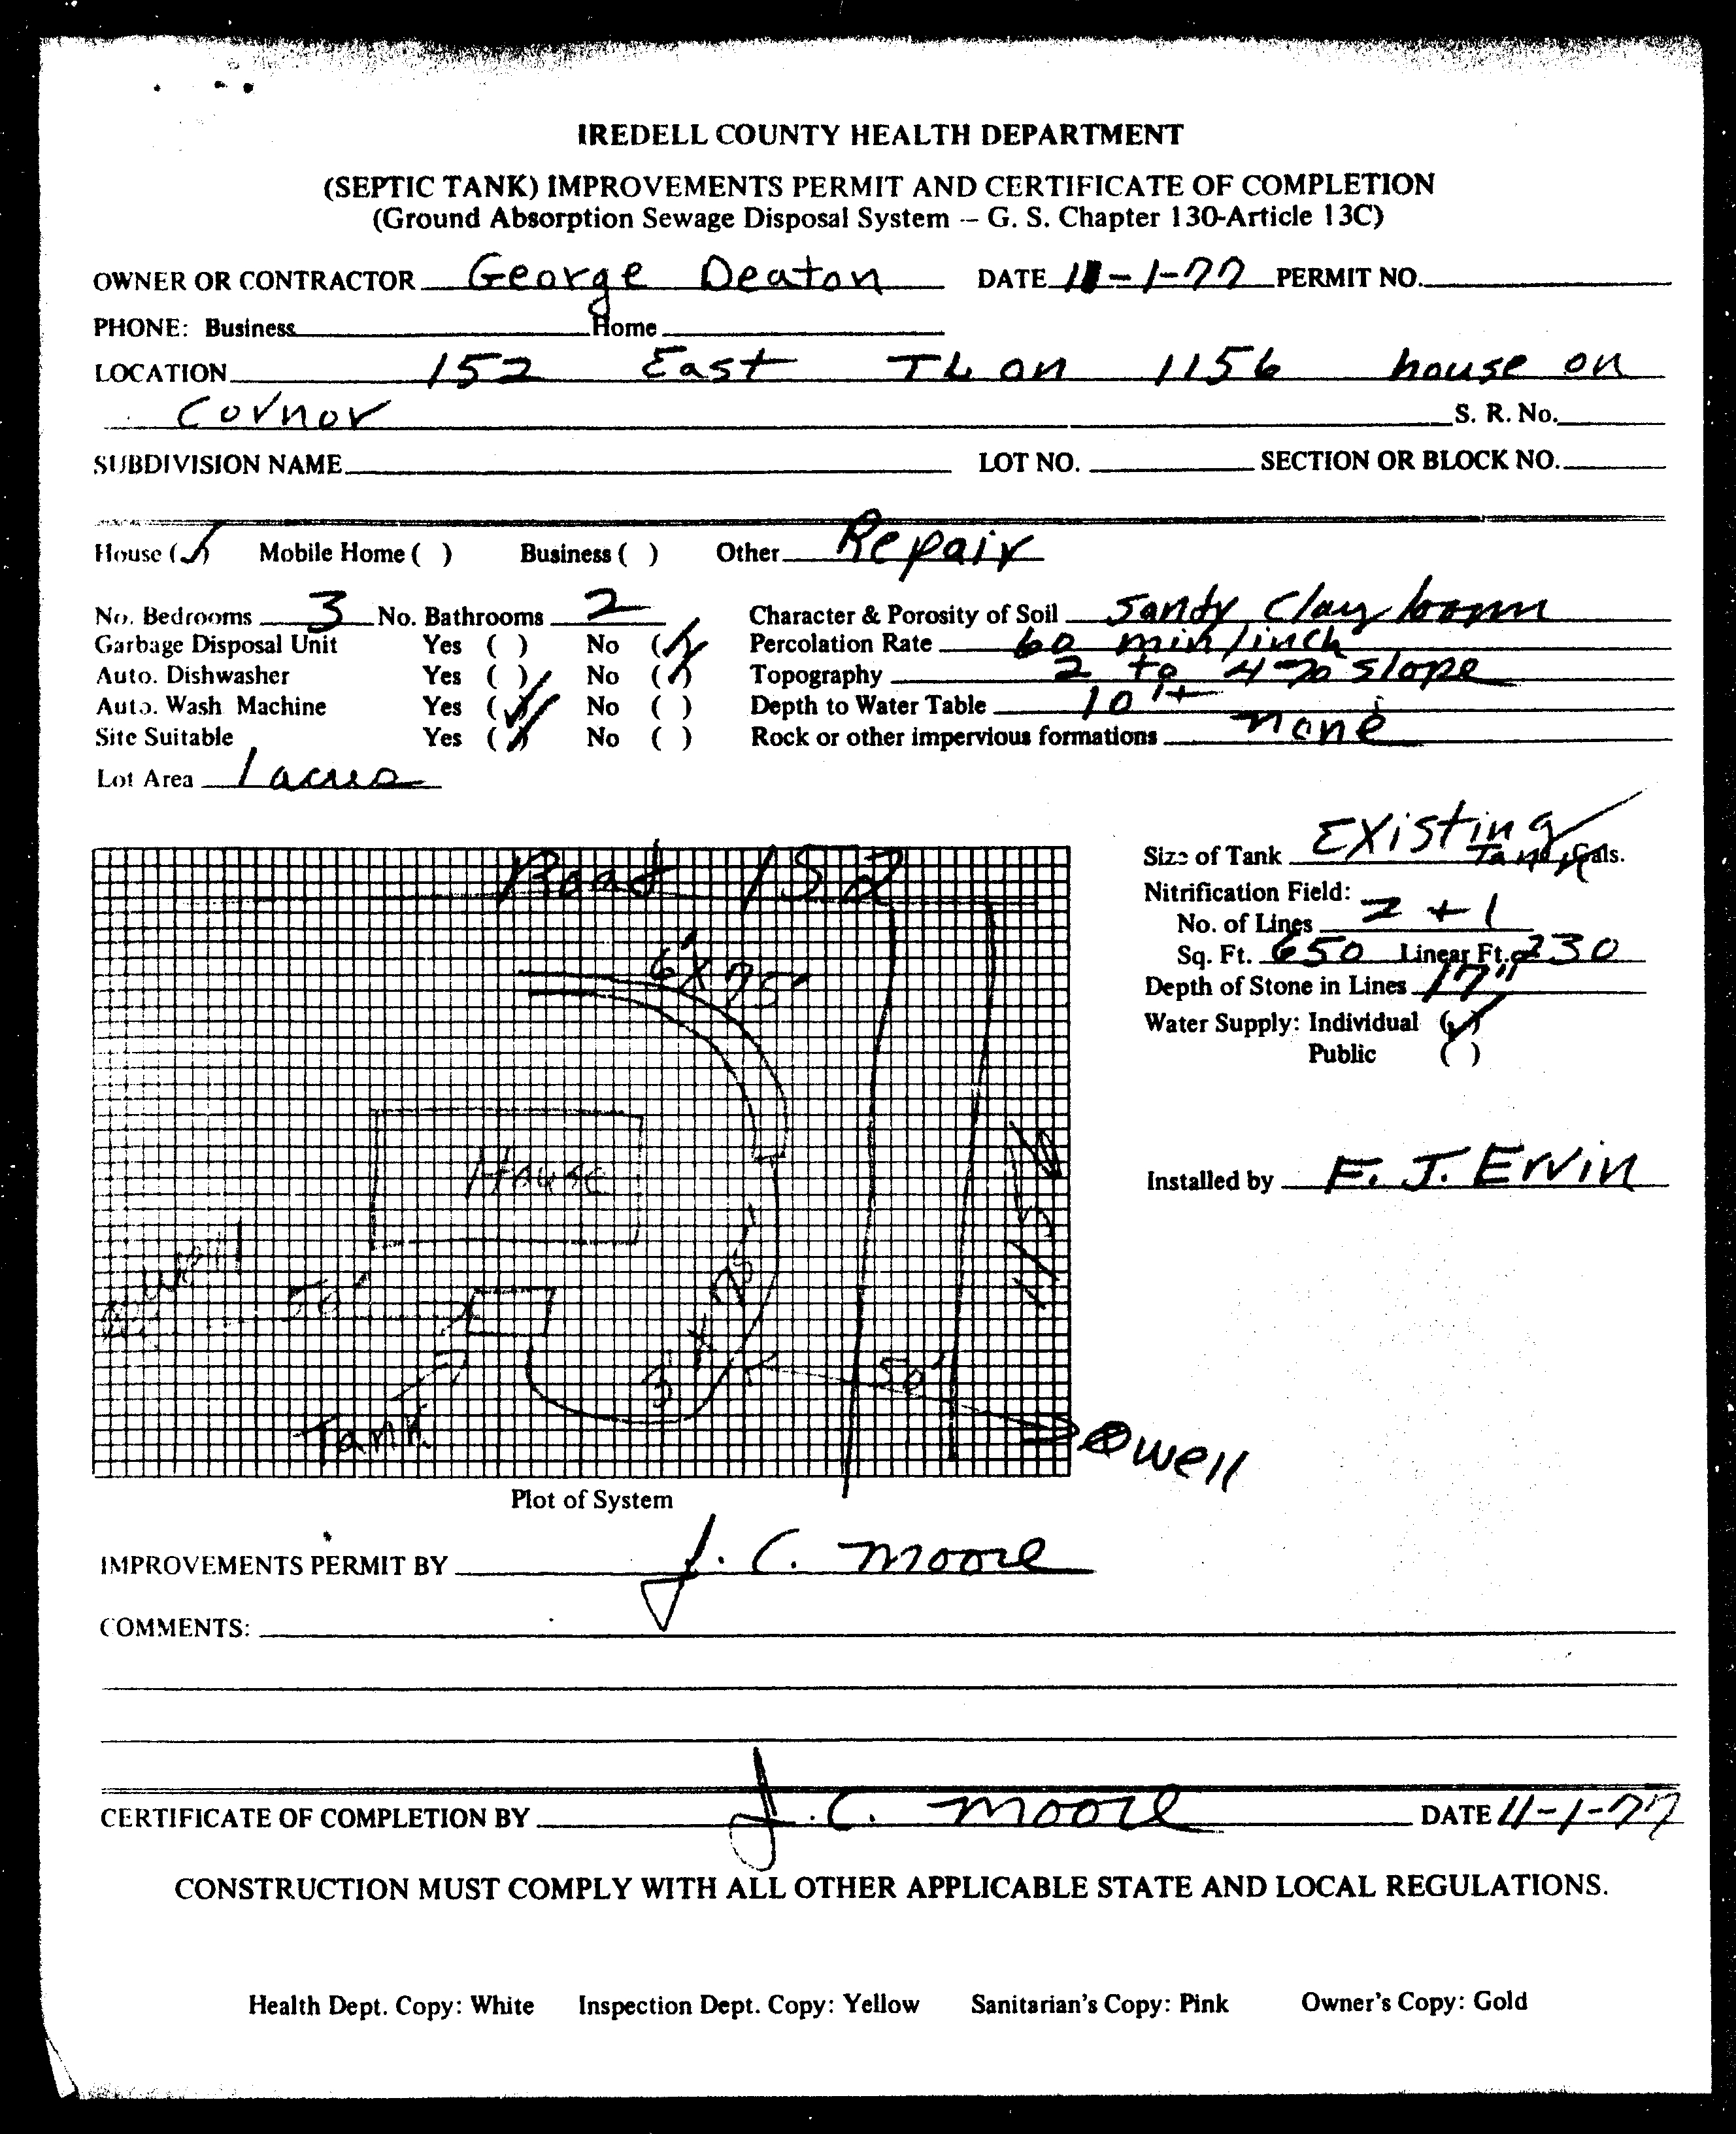 IREDELL COUNTY HEALTH DEPARTMENT
(SEPTIC TANK) IMPROVEMENTS PERMIT AND CERTIFICATE OF COMPLETION
(Ground Absorption Sewage Disposal System -- G. S. Chapter 130-Article 13C)
OWNER OR CONTRACTOR George Deaton DATE 11-1-77 PERMIT NO.
PHONE: Business Home
LOCATION 152 East TL on 1156 house on
Cornor S. R. No.
SUBDIVISION NAME LOT NO. SECTION OR BLOCK NO.
House (✓) Mobile Home ( ) Business ( ) Other Repair
No. Bedrooms 3 No. Bathrooms 2 Character & Porosity of Soil Sandy Clay loam
Garbage Disposal Unit Yes ( ) No (✓) Percolation Rate 60 min/inch
Auto. Dishwasher Yes ( ) No (✓) Topography 2 to 4% slope
Auto. Wash Machine Yes (✓) No ( ) Depth to Water Table 10'+
Site Suitable Yes (✓) No ( ) Rock or other impervious formations none
Lot Area 1 acres
Size of Tank Existing Tank Gals.
Nitrification Field:
No. of Lines 2 + 1
Sq. Ft. 650 Linear Ft. 230
Depth of Stone in Lines 17"
Water Supply: Individual (✓)
Public ( )
Installed by F. J. Ervin
Road 152
6' X 75'
House
Well
50'
3' X 75'
50'
Tank
Well
Plot of System
IMPROVEMENTS PERMIT BY J. C. Moore
COMMENTS:
CERTIFICATE OF COMPLETION BY J. C. Moore DATE 11-1-77
CONSTRUCTION MUST COMPLY WITH ALL OTHER APPLICABLE STATE AND LOCAL REGULATIONS.
Health Dept. Copy: White Inspection Dept. Copy: Yellow Sanitarian's Copy: Pink Owner's Copy: Gold